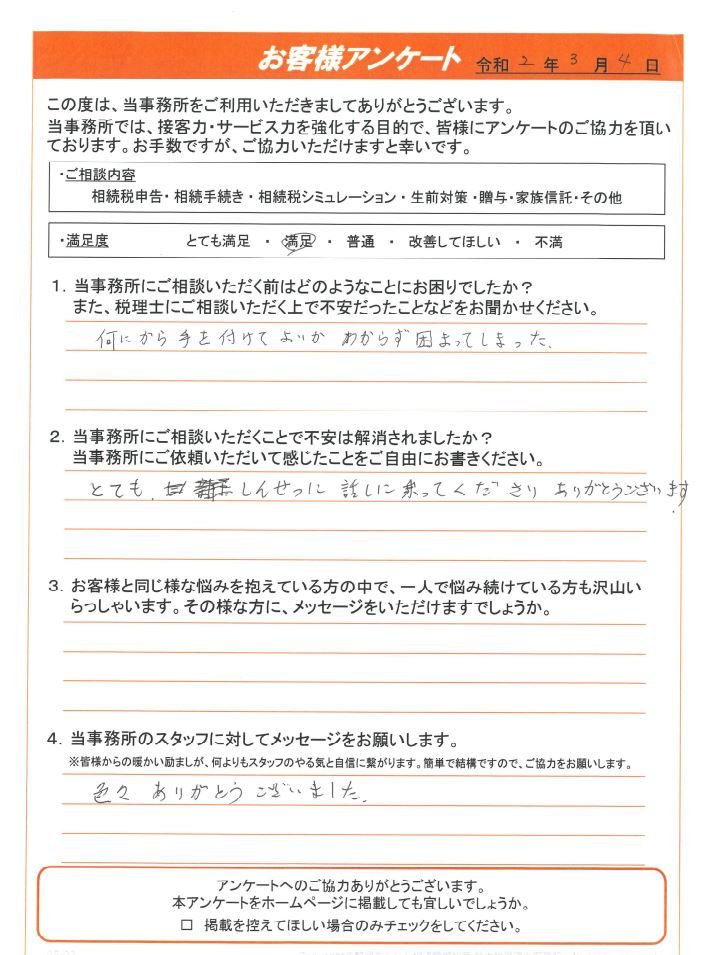 お客様アンケート 令和 2 年 3 月 4 日
この度は、当事務所をご利用いただきましてありがとうございます。
当事務所では、接客力・サービス力を強化する目的で、皆様にアンケートのご協力を頂い
ております。お手数ですが、ご協力いただけますと幸いです。
・ご相談内容
相続税申告・相続手続き・相続税シミュレーション・生前対策・贈与・家族信託・その他
・満足度 とても満足 ・ 満足 ・ 普通 ・ 改善してほしい ・ 不満
1. 当事務所にご相談いただく前はどのようなことにお困りでしたか？
また、税理士にご相談いただく上で不安だったことなどをお聞かせください。
何にから手を付けてよいか わからず困まってしまった.
2. 当事務所にご相談いただくことで不安は解消されましたか？
当事務所にご依頼いただいて感じたことをご自由にお書きください。
とても、しんせつに 話しに乗ってくださり ありがとうございます.
3. お客様と同じ様な悩みを抱えている方の中で、一人で悩み続けている方も沢山い
らっしゃいます。その様な方に、メッセージをいただけますでしょうか。
4. 当事務所のスタッフに対してメッセージをお願いします。
※皆様からの暖かい励ましが、何よりもスタッフのやる気と自信に繋がります。簡単で結構ですので、ご協力をお願いします。
色々 ありがとう ございました.
アンケートへのご協力ありがとうございます。
本アンケートをホームページに掲載しても宜しいでしょうか。
□ 掲載を控えてほしい場合のみチェックをしてください。